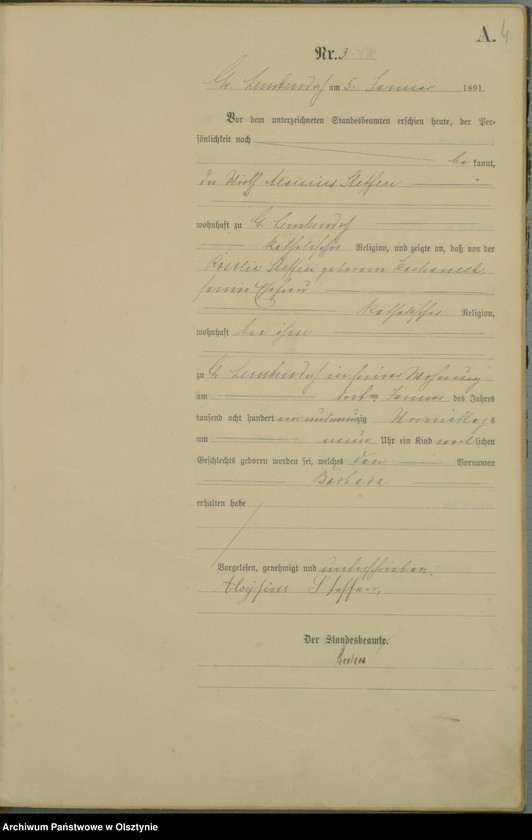 A. 4
Nr. 3
Gr. Lemkendorf am 5. Januar 1891.
Vor dem unterzeichneten Standesbeamten erschien heute, der Per-
sönlichkeit nach
be kannt,
der Wirth Aloisius Steffen
wohnhaft zu Gr. Lemkendorf
katholischer Religion, und zeigte an, daß von der
Rosalia Steffen geborenen
seiner Ehefrau
katholischer Religion,
wohnhaft bei ihm
zu Gr. Lemkendorf in seiner Wohnung
am Januar des Jahres
tausend acht hundert ein und neunzig Vormittag s
um neun Uhr ein Kind weiblichen
Geschlechts geboren worden sei, welches den Vornamen
Barbara
erhalten habe
Vorgelesen, genehmigt und unterschrieben.
Aloysius Steffen.
Der Standesbeamte.
Archiwum Państwowe w Olsztynie